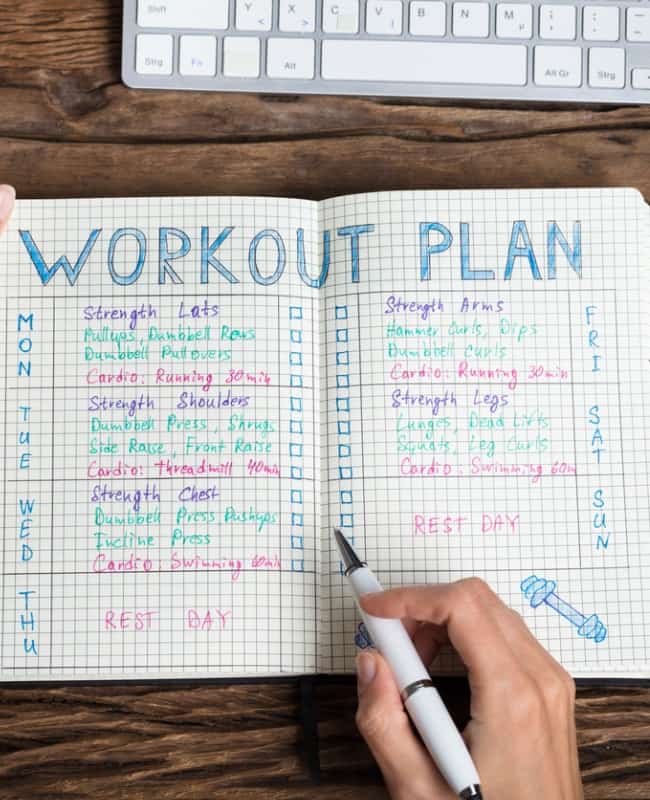 Shift
Y
X
C
V
B
N
M
Strg
Fn
Alt
Alt Gr
Strg
WORKOUT PLAN
MON
Strength Lats
Pullups, Dumbbell Rows
Dumbbell Pullovers
Cardio: Running 30min
TUE
Strength Shoulders
Dumbbell Press, Shrugs
Side Raise, Front Raise
Cardio: Threadmill 40min
WED
Strength Chest
Dumbbell Press Pushups
Incline Press
Cardio: Swimming 60min
THU
REST DAY
Strength Arms
Hammer Curls, Dips
Dumbbell Curls
Cardio: Running 30min
FRI
Strength Legs
Lunges, Dead Lifts
Squats, Leg Curls
Cardio: Swimming 60m
SAT
REST DAY
SUN